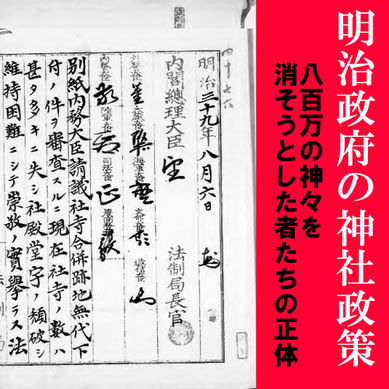 明治政府の神社政策
八百万の神々を
消そうとした者たちの正体
明治三十九年八月六日
内閣總理大臣
法制局長官
別紙内務大臣請議社寺合併跡地無代下
付ノ件ヲ審査スルニ現在社寺ノ數ハ
甚タ多キニ失シ社殿堂宇ノ頽破シ
維持困難ニシテ崇敬ノ實擧ラス法